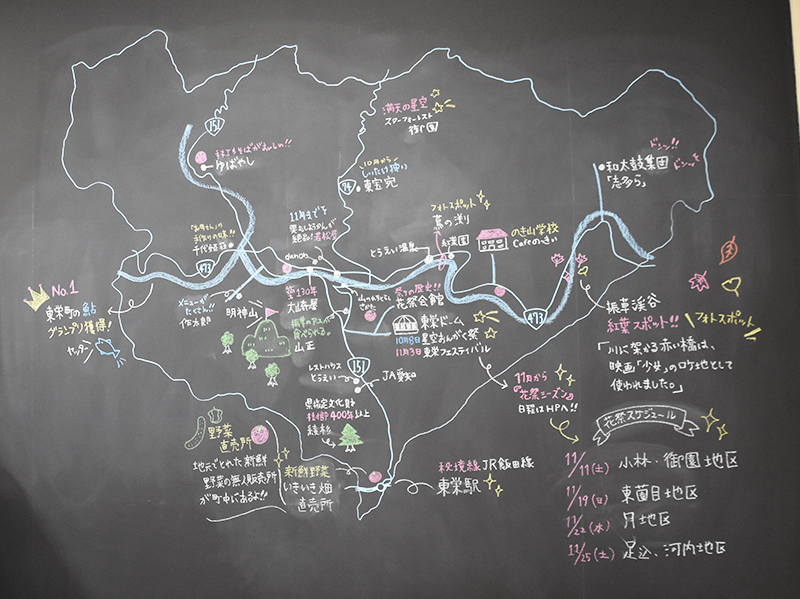 満天の星空
スターフォーレスト
御園
151
ゆばやし
10月から
しいたけ狩り
東宝苑
74
ドンッ!!
ドンッ
和太鼓集団
「志多ら」
フォトスポット
蔦の渕
紅葉園
のき山学校
Cafeのっきぃ
11月までの
若松屋
千代姫荘
とうえい温泉
danon
473
No.1
東栄町の鮎
グランプリ獲得!
メニューが
たくさん!!
佐太郎
明神山
築130年
大山新屋
食べられる。
山正
祭りの歴史!!
花祭会館
東栄ドーム
10月8日 星空おんがく祭
11月3日 東栄フェスティバル
473
振草渓谷
紅葉スポット!!
フォトスポット
「川に架かる赤い橋は、
映画「少女」のロケ地として
使われました。」
レストハウス
とうえい
151
JA愛知
11月から
花祭シーズン
日程はHPへ!!
県指定文化財
樹齢400年以上
綾杉
花祭スケジュール
野菜
直売所
地元でとれた新鮮
野菜の無人販売所
が町中にあるよ!!
新鮮野菜
いきいき畑
直売所
秘境線 JR飯田線
東栄駅
11/11(土) 小林・御園地区
11/19(日) 東薗目地区
11/22(水) 月地区
11/25(土) 足込、河内地区